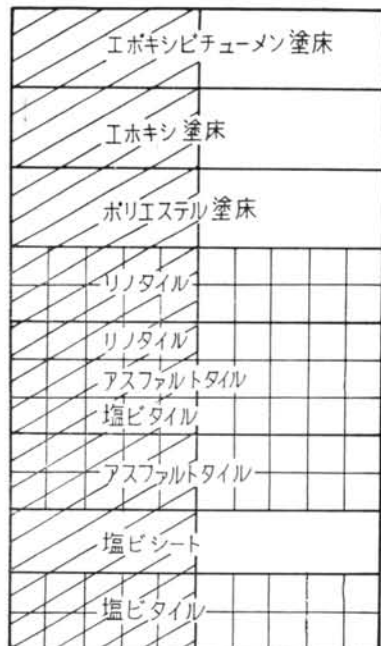 エポキシビチューメン塗床
エホキシ塗床
ポリエステル塗床
リノタイル
リノタイル
アスファルトタイル
塩ビタイル
アスファルトタイル
塩ビシート
塩ビタイル